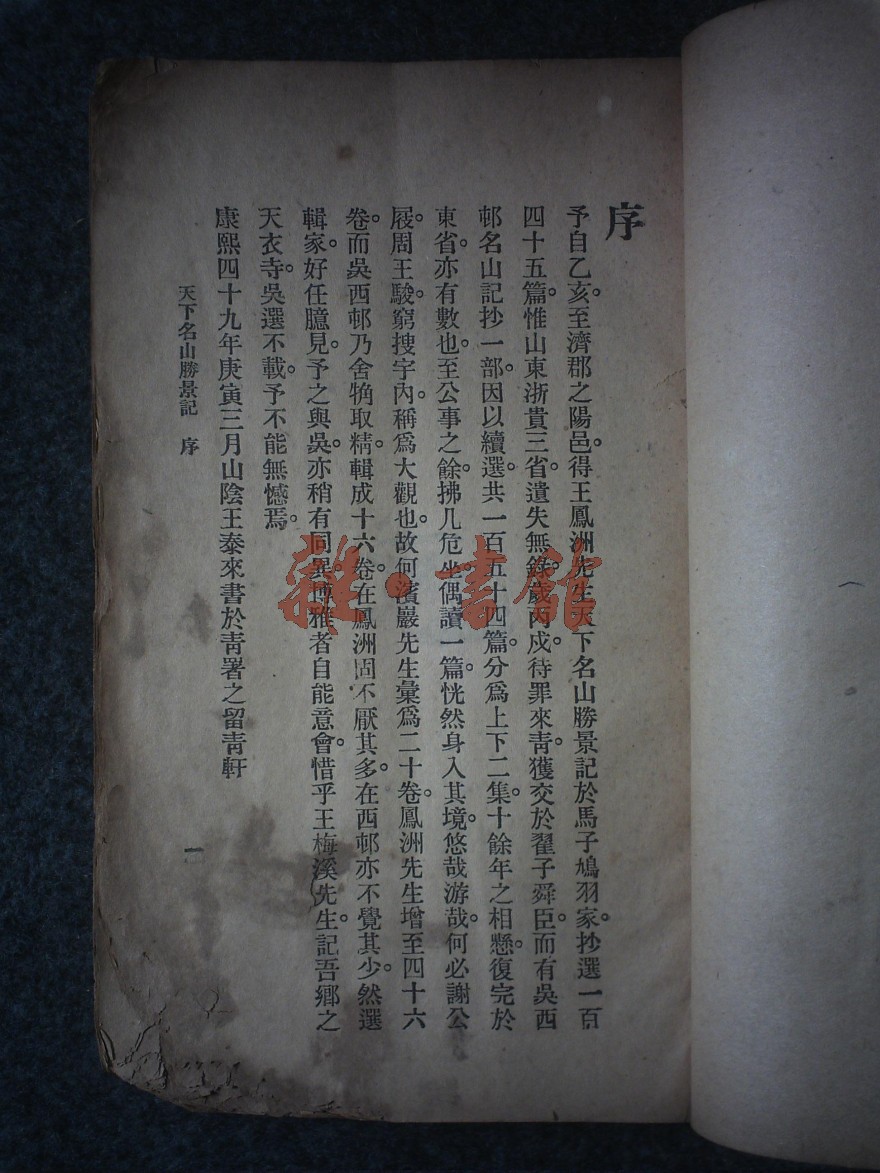 序
予自乙亥。至濟郡之陽邑。得王鳳洲先生天下名山勝景記於馬子鳩羽家。抄選一百
四十五篇。惟山東浙貴三省。遺失無錄。歲丙戍。待罪來靑。獲交於翟子舜臣。而有吳西
邨名山記抄一部。因以續選。共一百五十四篇。分爲上下二集。十餘年之相懸。復完於
東省。亦有數也。至公事之餘。拂几危坐。偶讀一篇。恍然身入其境。悠哉游哉。何必謝公
屐。周王駿。窮搜宇內。稱爲大觀也。故何濱巖先生彙爲二十卷。鳳洲先生增至四十六
卷。而吳西邨乃舍觕取精。輯成十六卷。在鳳洲固不厭其多。在西邨亦不覺其少。然選
輯家。好任臆見。予之與吳。亦稍有同異。博雅者自能意會。惜乎王梅溪先生。記吾鄉之
天衣寺。吳選不載。予不能無憾焉。
康熙四十九年庚寅三月山陰王泰來書於靑署之留靑軒
天下名山勝景記 序
一
雜·書館